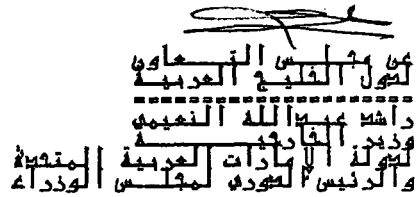 عن مجلس التعاون
لدول الخليج العربية
راشد عبدالله النعيمي
وزير الخارجية
لدولة الإمارات العربية المتحدة
والرئيس الدوري لمجلس الوزراء